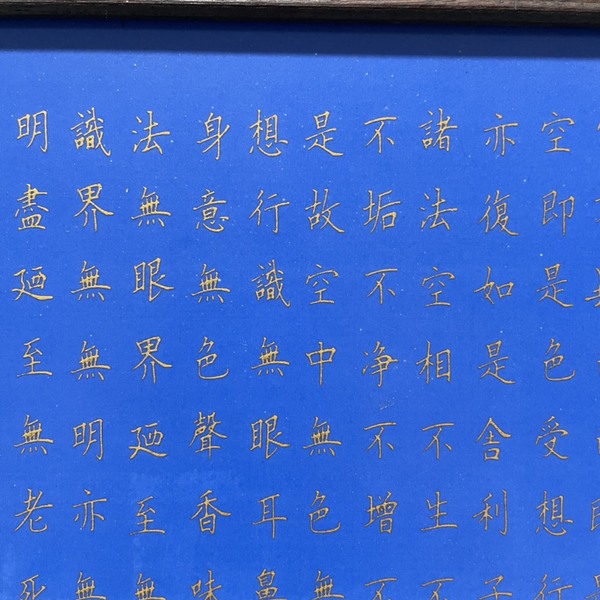 空即是色受想行
亦復如是舍利子
諸法空相不生不
不垢不净不增不
是故空中無色無
想行識無眼耳鼻
身意無色聲香味
法無眼界廼至無
識界無無明亦無
明盡廼至無老死